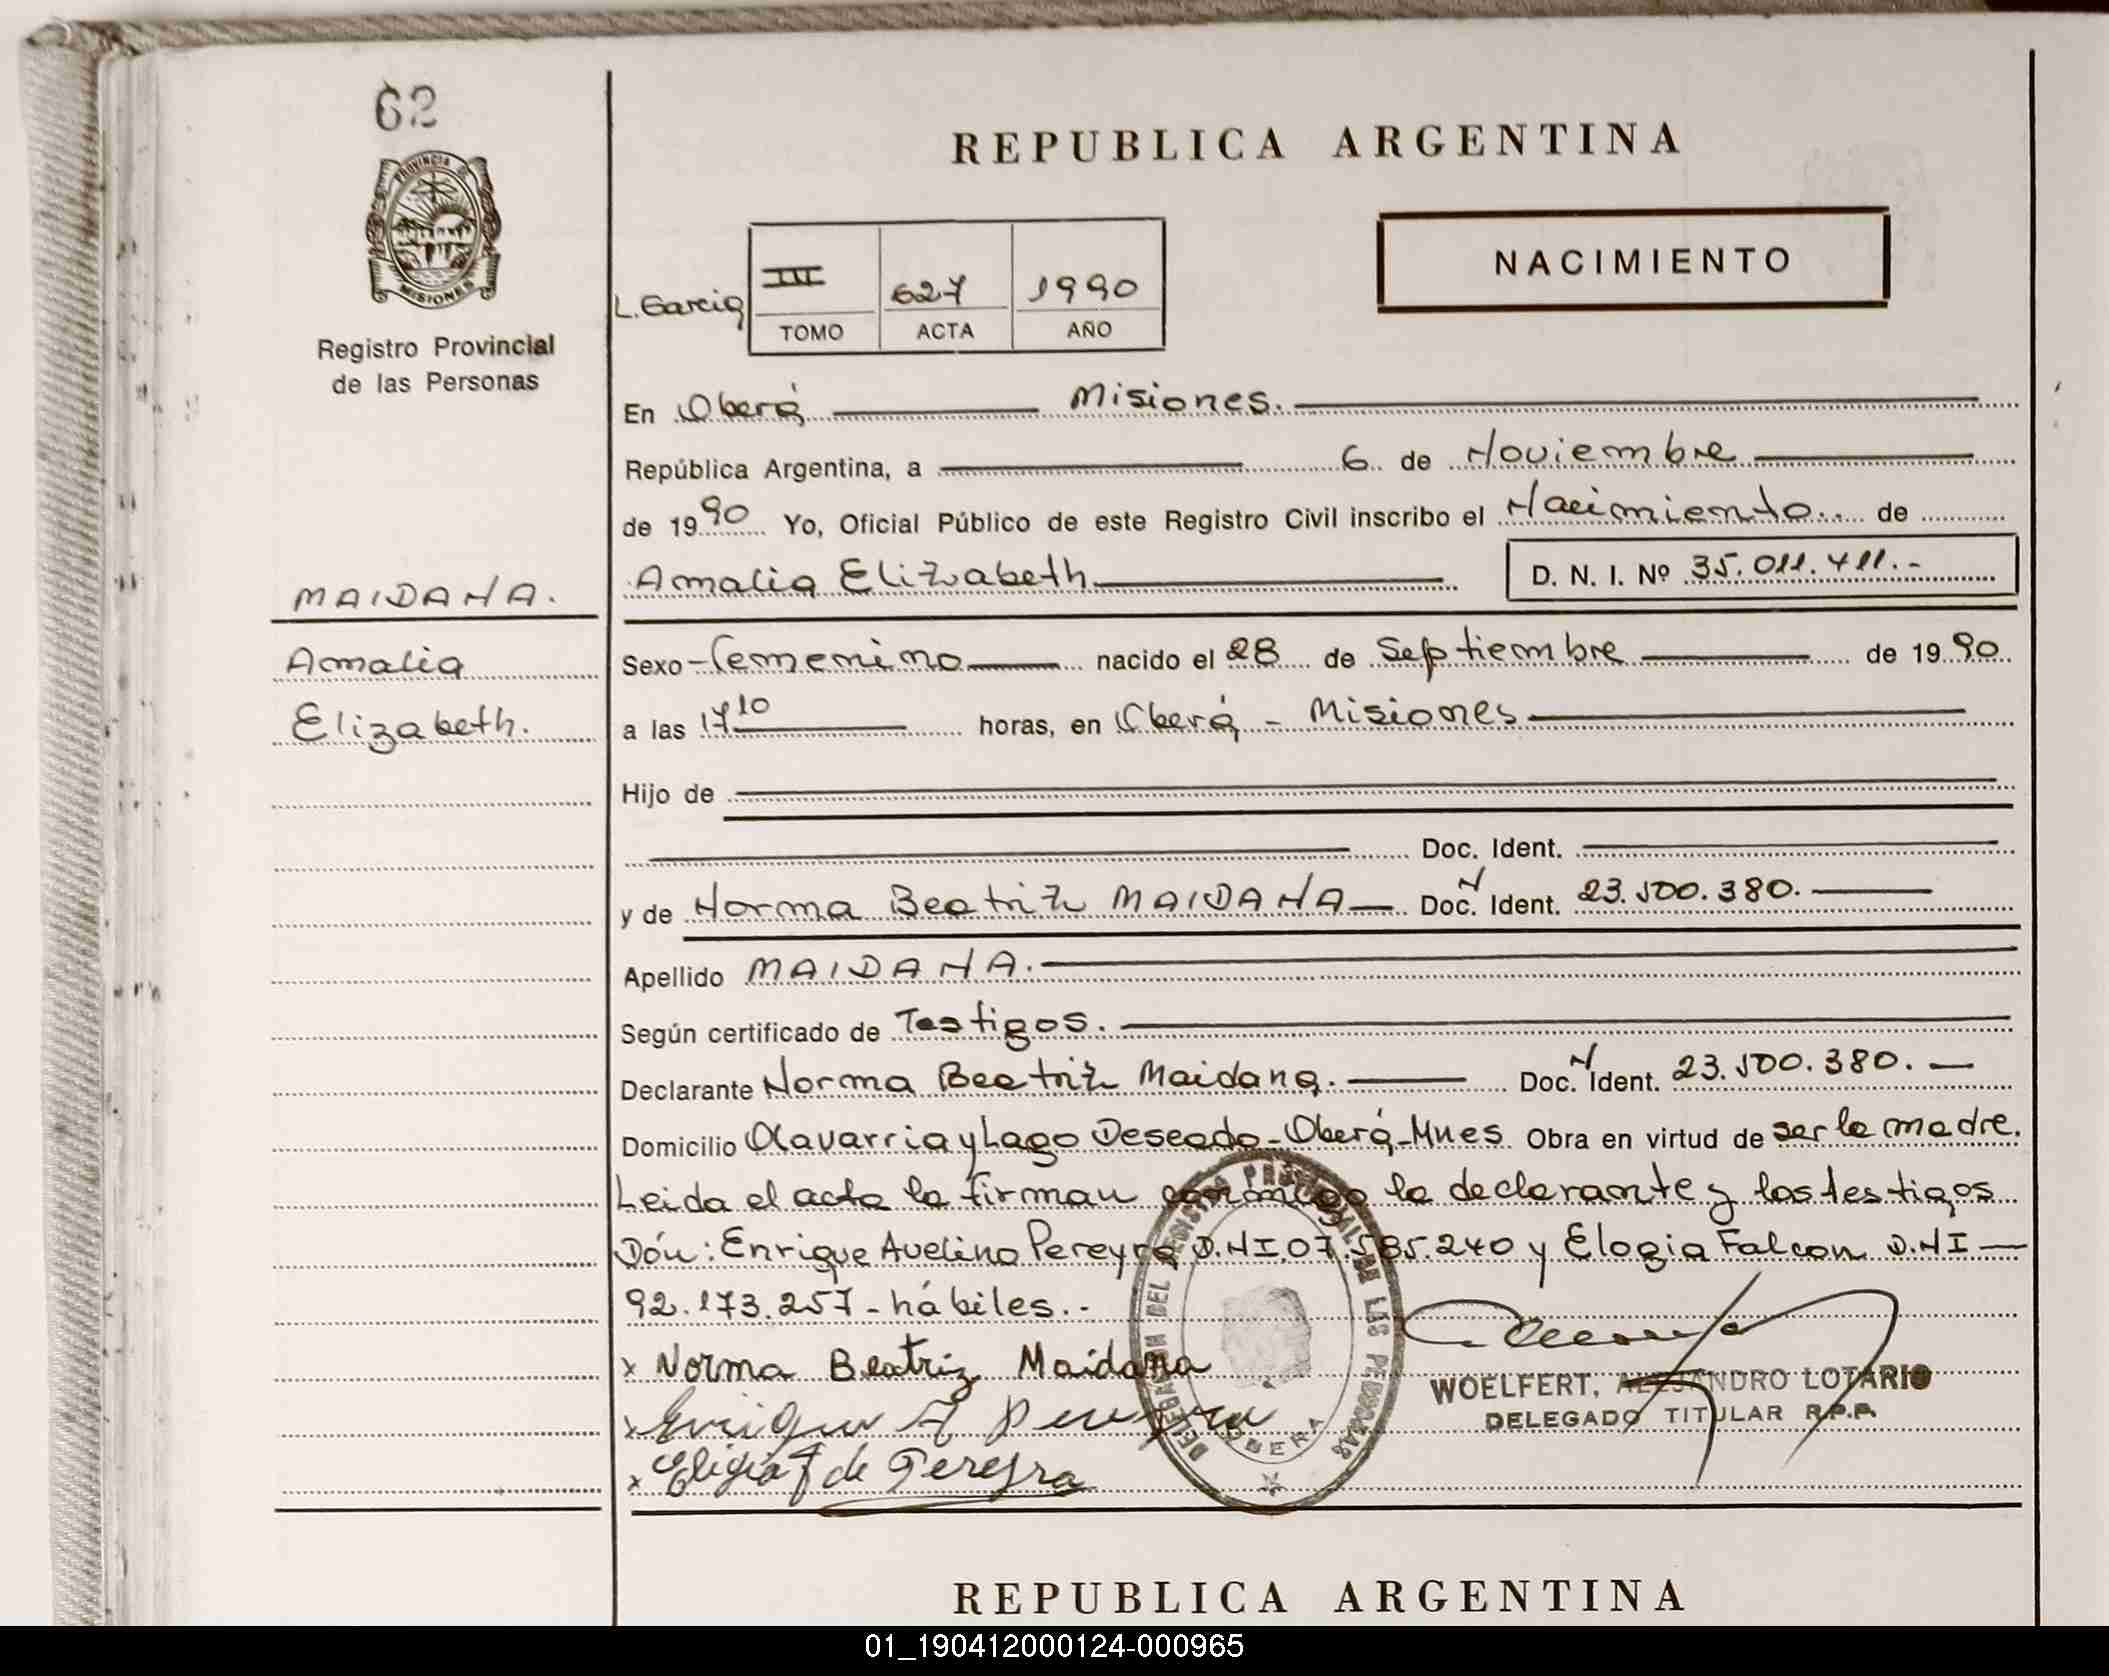 62
PROVINCIA DE
MISIONES
Registro Provincial
de las Personas
REPUBLICA ARGENTINA
NACIMIENTO
L. Garcia
III 627 1990
TOMO ACTA AÑO
En Oberá Misiones.
República Argentina, a 6 de Noviembre
de 1990 Yo, Oficial Público de este Registro Civil inscribo el Nacimiento de
MAIDANA. Amalia Elizabeth D. N. I. Nº 35.011.411.-
Amalia Sexo Femenino nacido el 28 de Septiembre de 1990
Elizabeth. a las 17 10 horas, en Oberá - Misiones
Hijo de
Doc. Ident.
y de Norma Beatriz MAIDANA Doc. N Ident. 23.500.380.
Apellido MAIDANA.
Según certificado de Testigos.
Declarante Norma Beatriz Maidana. Doc. N Ident. 23.500.380.
Domicilio Olavarria y Lago Deseado - Oberá - Mnes Obra en virtud de ser la madre.
Leida el acta la firman conmigo la declarante y los testigos
Dón: Enrique Avelino Pereyra D.N.I. 07.585.240 y Elogia Falcon D.N.I
92.173.257 - hábiles.-
x Norma Beatriz Maidana
x Enrique A Pereyra
x Eligia F de Pereyra
DELEGACION DEL REGISTRO PROVINCIAL DE LAS PERSONAS
OBERA
WOELFERT, ALEJANDRO LOTARIO
DELEGADO TITULAR R.P.P.
REPUBLICA ARGENTINA
01_190412000124-000965